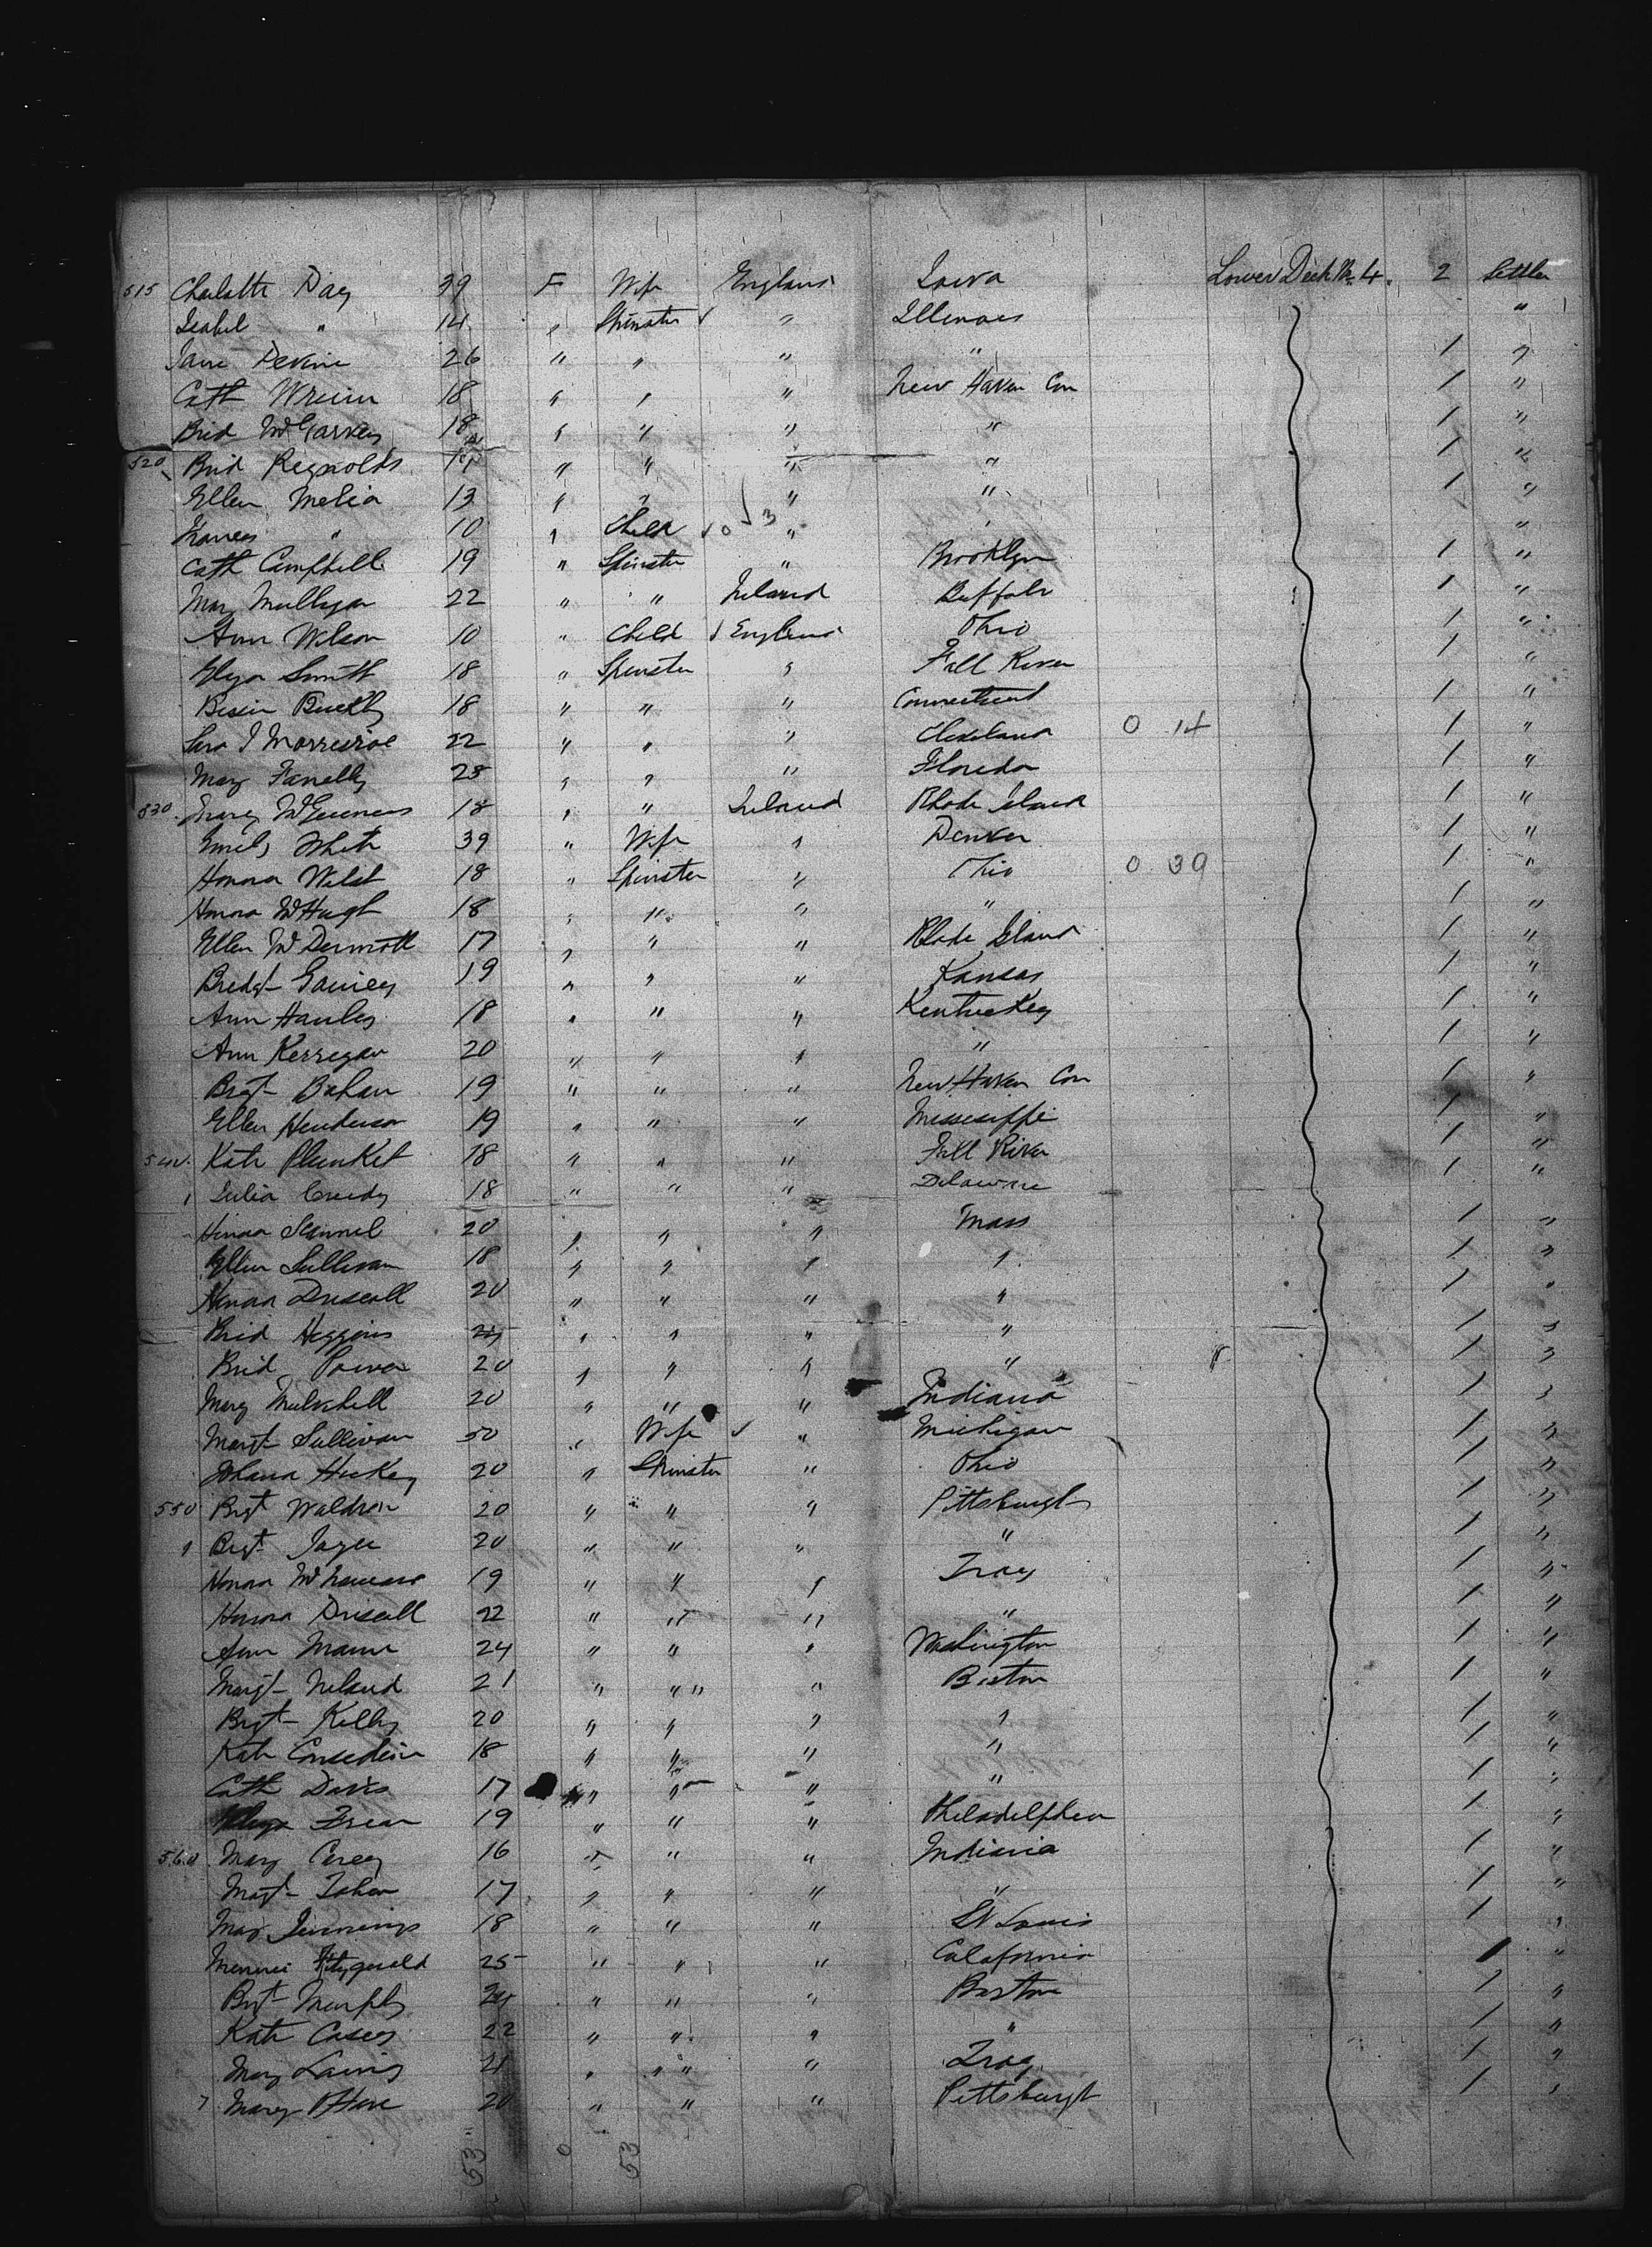 515 Charlotte Day 39 F Wife England Iowa Lower Deck No. 4. 2 Settler
Isabel " 14 " Spinster " Illinois "
Jane Devine 26 " " " " 1 "
Cath 18 " " " New Haven Con 1 "
Brid McGarvey 18 " " " " 1 "
520 Brid Reynolds " " " " 1 "
Ellen Melia 13 " " " " 1 "
Frances " 10 " Child 0 3 " " "
Cath Campbell 19 " Spinster " Brooklyn 1 "
Mary Mulligan 22 " " Ireland Buffalo 1 "
Ann Wilson 10 " Child England Ohio 1 "
Eliza Smith 18 " Spinster " Fall River 1 "
Bessie Buckley 18 " " " Connecticut 1 "
Sara J 22 " " " Cleveland 0 14 1 "
Mary Farrelly 25 " " " Florida 1 "
530. Mary McGuiness 18 " " Ireland Rhode Island 1 "
Emily White 39 " Wife " Denver 1 "
Honora Welsh 18 " Spinster " Ohio 0 39 1 "
Honora McHugh 18 " " " " 1 "
Ellen McDermott 17 " " " Rhode Island 1 "
Bredgt 19 " " " Kansas 1 "
Ann Hanley 18 " " " Kentuckey 1 "
Ann Kerregan 20 " " " " 1 "
Brgt 19 " " " New Haven Con 1 "
Ellen Henderson 19 " " " Missesippi 1 "
540. Kate Plunket 18 " " " Fall River 1 "
1 Julia 18 " " " Delaware 1 "
Honora Scannel 20 " " " Mass 1 "
Ellen Sullivan 18 " " " " 1 "
Honora Driscoll 20 " " " " 1 "
Brid Higgins " " " " 1 "
Brid Power 20 " " " " 1 "
Mary 20 " " " Indiana 1 "
Margt Sullivan 50 " Wife " Michigan 1 "
Johana Hickey 20 " Spinster " Ohio 1 "
550 Brgt Waldron 20 " " " Pittsburgh 1 "
1 Brgt Joyce 20 " " " " 1 "
Honora 19 " " " Troy 1 "
Honora Driscoll 22 " " " " 1 "
Ann 24 " " " Washington 1 "
Margt 21 " " " Boston 1 "
Brgt Kelly 20 " " " " 1 "
Kate Consedine 18 " " " " 1 "
Cath Davis 17 " " " " 1 "
Eliza 19 " " " Philadelphia 1 "
560 Mary Carey 16 " " " Indiana 1 "
Magt 17 " " " " 1 "
Mary Jennings 18 " " " St Louis 1 "
Minnie Fitzgerald 25 " " " California 1 "
Brgt Murphy 24 " " " Boston 1 "
Kate Casey 22 " " " " 1 "
Mary 21 " " " Troy 1 "
7 Mary OHare 20 " " " Pittsburgh 1 "
53 0 53